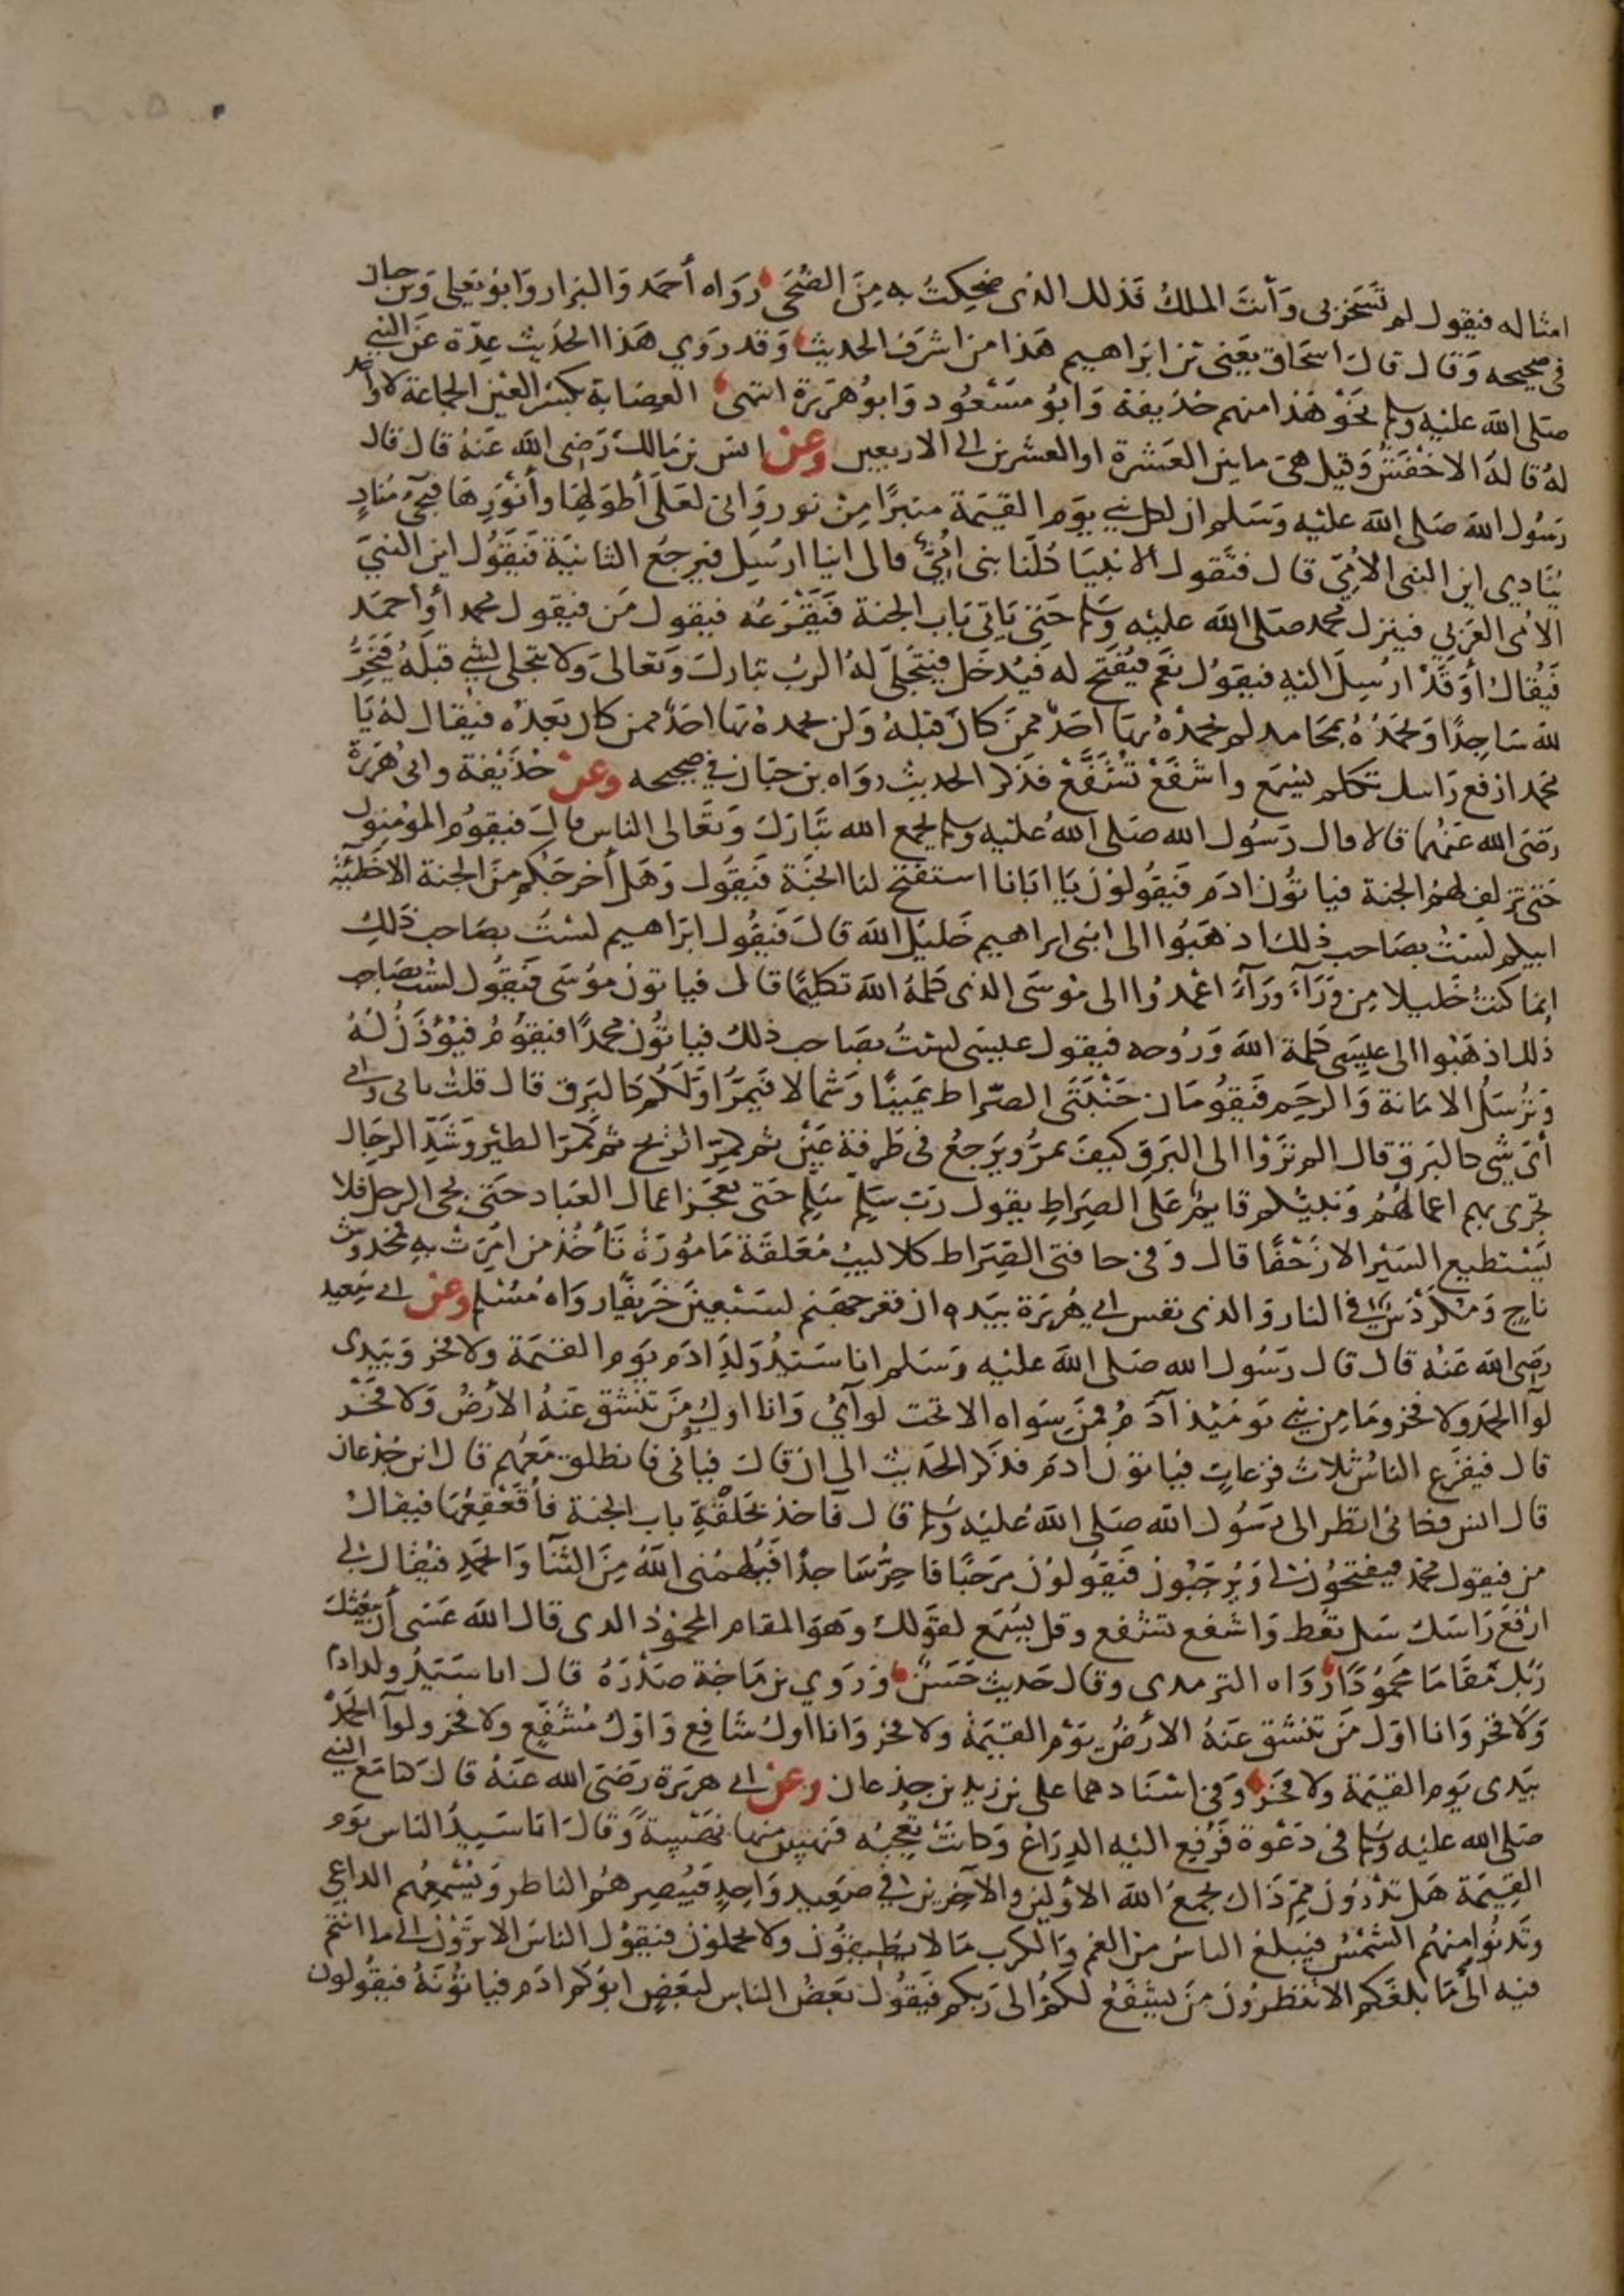 امثاله فيقول لم تَسْخَر بى وَأنتَ الملكُ فَذلك الذى ضحِكتُ به مِنَ الضُّحَى روَاه أحمَد وَالبزار وَابو يَعلى وَبن حبان
فى صحيحه وَقال قالَ اسحَاق يَعنى بن ابرَاهيم هَذا من اشرَف الحديث وَقد رَوَي هَذا الحَديث عِدّة عَن النبي
صَلى الله عليْه وسلم نحَوْ هَذا منهم حُذيفة وَابُو مسْعُود وَابو هرَيرَة انتهى العِصَابة بكسْر العَيْن الجماعة لا واحد
لهُ قالهُ الاخْفَشُ وَقيل هىَ ما بين العَشرة او العشرين الى الاربعين وعن انس بن مَالك رَضى الله عَنهُ قال قال
رَسُول الله صَلى الله عليْه وَسَلم ان لكل نبي يوَم القيَمة منبرًا مِنْ نور وَانى لعَلَى أطوَلهَا وأنوَرِهَا فيَجئ مُنادٍ
يُنَادي اين النبى الامّيّ قال فتَقول الانبيَا كُلنَا نبى امّىّ فالى اينا ارسِل فيرجعُ الثانيَة فيَقُول اين النبىّ
الامّى العَرَبي فينزل محمد صَلى الله عليْه وَسَلم حَتى يَاتىَ بَاب الجنة فَيَقْرَعُه فيَقول مَن فيقول محمد أوْ احمَد
فَيُقال أوَقَدْ ارسِلَ اليْهِ فيَقوُل نعَم فيُفتَح له فَيدخل فيَتجَلىّ لهُ الربّ تبَاركَ وَتعَالىَ وَلا يتجلى لشي قبلَهُ فَيَخِرُّ
للهِ سَاجِدًا وَيَحمَدُهُ بمحَامِد لم يحمدْهُ بهَا احَدٌ ممّن كانَ قبلهُ وَلن يحمدهُ بهَا احَدٌ ممن كان بَعدَهُ فيُقال لهُ يَا
محمد ارفع رَاسك تكلم تسْمَع واشفَعْ تشَفَّعْ فذكر الحديث روَاه بن حبَان في صَحيحه وعن حُذَيْفة وابى هُرَيرَة
رَضَى الله عَنهُما قالا قال رَسُول الله صَلى اللهُ عليْه وسلم يجمع الله تبَارَكَ وَتعَالى الناس قالَ فيَقومُ المؤمنون
حَتى تزلفَ لهُمُ الجنة فياتُون ادَمَ فَيقُولوُن يَا ابَانا استفتح لنا الجَنَّة فَيقُول وَهَل أخرَجَكم مِنَ الجنة الا خطيئَة
ابيكم لستُ بصَاحب ذلكَ اذهَبُوا الى ابنى ابراهيم خَليْل الله قالَ فَيقُول ابرَاهيم لستُ بصَاحب ذَلِكَ
انمَا كنتُ خَليلا مِن وَرَآءَ وَرَآءَ اعْمدُوا الى مُوسَى الذى كلمهُ اللهَ تكليمًا قال فياتون موُسَى فَيقُول لستُ بصَاحِب
ذلك اذهَبُوا الى عِيسَى كلمة اللهَ وَرُوحه فيقول عيسَى لستُ بصَاحب ذلكَ فياتُون محمدًا فيَقُومُ فيُؤذَنُ لهُ
وَترسَلُ الامَانة وَالرحَم فَيقومَان جَنْبَتَى الصّرَاط يَمينًا وَشمالا فَيمَرّ اوّلكم كالبَرق قال قلتُ بابى وامى
أىّ شَى كالبَرقِ قال الم ترَوْا الى البَرق كيفَ يمرُّ ويَرجعُ فى طَرفة عَين ثم كمرّ الرّيح ثم كمَرّ الطيْر وَشَدِّ الرِجَال
تجرى بهم اعمالهُم وَنبيّكم قايم عَلى الصِرَاطِ يقول رَبّ سَلم سَلم حَتى تعجزَ اعمال العبَاد حَتى يجى الرجل فلا
يَسْتطيع السَيْر الا زَحْفًا قال وَفى حافتى الصِّرَاط كلاليبُ مُعَلقَة مَامُورَة تَأخُذ من امِرَتْ بهِ فمخدوش
نَاج وَمكَرْدَسٌ في النار وَالذى نفس ابي هُرَيرَة بيَده ان قعرَ جهَنم لسَبْعِين خَريفًا روَاهُ مُسْلم وعن ابي سَعيد
رضَى الله عَنهُ قال قال رَسُول الله صَلى الله عليْه وَسَلم انا سَيّدُ وَلَدِ ادَم يَومِ القيَمة وَلا فخر وَبيَدى
لوَآ الحَمد ولا فخر ومَا مِن نبي يَومَئِذ آدَمُ فمَن سِوَاه الا تحت لوآئي وَانا اولُ مَن تنشَق عَنهُ الأرضُ وَلا فخر
قال فيفزَع الناسُ ثلاث فزعاتٍ فيَاتون ادَم فذكر الحَديث الى ان قالَ فيأتونى فانطلق مَعَهُم قال ابن جُدعان
قال انس فكانى انظر الى رَسُول الله صَلى اللهُ عليْه وَسَلم قال فآخذ بحَلقَةِ باب الجنة فأُقَعْقِعُهَا فيقالُ
من فيقول محمد فيفتحُون لى وَيُرحِّبُونَ فَيقُولوُن مَرحَبًا فاخِرُّ سَاجدًا فَيُلهمُنى اللهُ مِنَ الثنآ وَالحَمدِ فيُقال لي
ارْفَعْ رَاسَك سَل تعُط وَاشفع تشفع وقل يسْمَع لقوَلك وَهوَ المقام المحمُوْد الذى قال اللهَ عَسَى أن يَبْعَثَكَ
رَبك مَقَامَا محمُودًا رَوَاه الترمدى وقال حَديث حَسَنٌ وَرَوي بن مَاجَة صَدْرَهُ قال انا سَيّدُ ولد ادم
وَلا فخر وَانا اوّل مَن تنشق عَنهُ الأرضُ يَوْمَ القيَمَة ولا فخر وَانا اول شافِع وَاوّل مُشَفَّع ولا فخر ولوآ الحَمْد
بيَدى يَوم القيَمة ولا فخَر وَفى اسْنَادهما على بن زيد بن جدعان وعن ابي هرَيرَة رَضَى الله عَنهُ قالَ كنا مَع النبي
صَلى الله عليْه وسلم فى دَعْوة فَرُفع اليْه الذِرَاعْ وَكانتْ تُعجبُه فنَهَس منها نهْسَةً وَقالَ انا سَيدُ الناس يَوم
القيَمَة هَل تدْرُونَ ممّ ذَاكَ يجمعُ الله الاوَّلينَ والآخِرين في صَعِيد وَاحِدٍ فَيُبْصِرهُم الناظر وَيُسْمِعُهم الداعي
وتَدنُوا منهُم الشَمْسُ فيَبلغ الناسَ من الغم وَالكرب مَا لا يُطيقُون ولا يحملون فيَقوُل الناس الا ترَوْن الى ما انتم
فيه الى مَا بلغكم الا تنظرُونَ مَن يشفَعُ لكُمْ الى رَبكم فَيقُول بَعضُ الناس لبَعَضٍ ابوكم ادَم فيَاتُونَهُ فيقولون